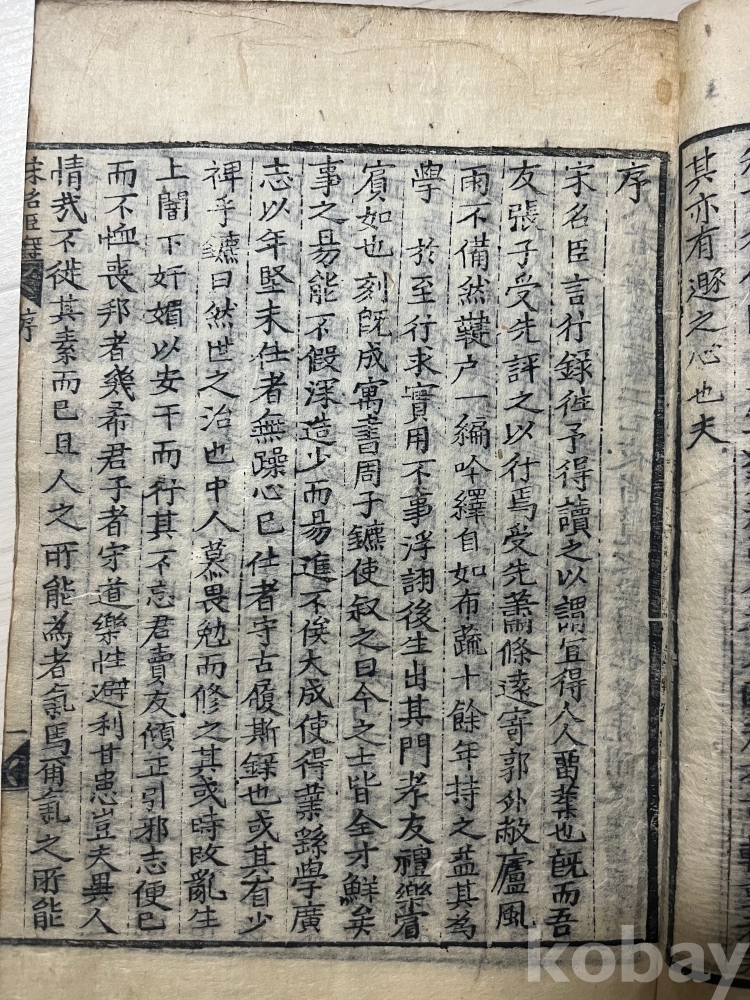 其亦有遯之心也夫
序
宋名臣言行錄徃予得讀之以謂宜得人人畱葉也旣而吾
友張子受先評之以行焉受先蕭條遠寄郭外敝廬風
雨不備然鞬户一編吟繹自如布蔬十餘年持之益其為
學 於至行求實用不事浮詡後生出其門孝友禮樂賓
賓如也刻旣成寓書周子鑣使叙之曰今之士皆全才鮮矣
事之易能不假深造少而易進不俟大成使得葉縣學廣
志以年堅未仕者無躁心已仕者守古履斯錄也或其有少
裨乎鑣曰然世之治也中人慕畏勉而修之其或時政亂生
上闇下奸媚以安干而行其不忘君賣友傾正引邪志便已
而不恤喪邦者幾希君子者守道樂性避利甘患豈夫異人
情哉不徙其素而已且人之所能為者氣焉爾氣之所能
宋名臣 序 一
kobay